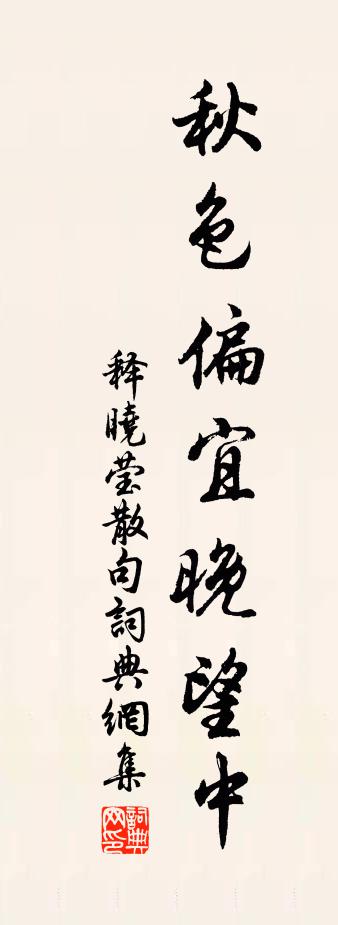 秋色偏宜晚望中
释曉莹散句詞典網集
詞典
网印